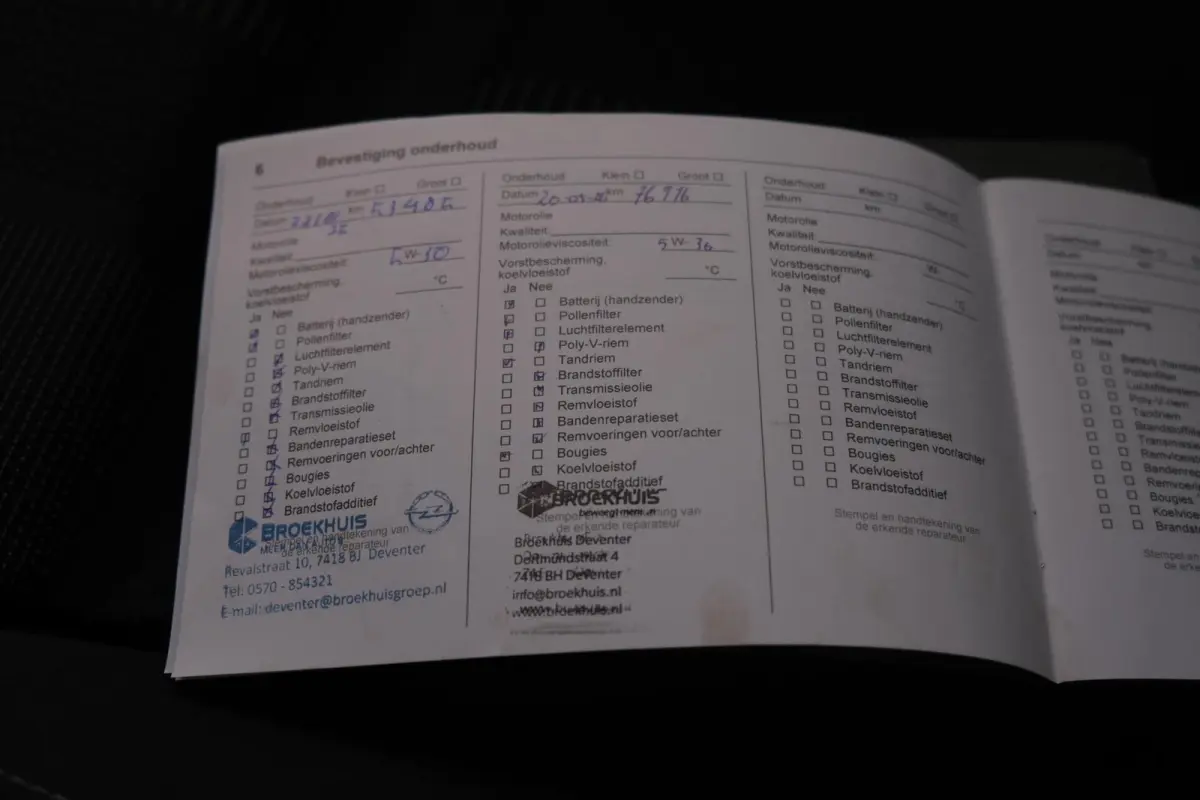 6 Bevestiging onderhoud
Onderhoud Klein Groot
Datum km
Motorolie
Kwaliteit
Motorolieviscositeit: 5W-30
Vorstbescherming,
koelvloeistof °C
Ja Nee
Batterij (handzender)
Pollenfilter
Luchtfilterelement
Poly-V-riem
Tandriem
Brandstoffilter
Transmissieolie
Remvloeistof
Bandenreparatieset
Remvoeringen voor/achter
Bougies
Koelvloeistof
Brandstofadditief
BROEKHUIS
Stempel en handtekening van
de erkende reparateur
Revalstraat 10, 7418 BJ Deventer
Tel: 0570 - 854321
E-mail: deventer@broekhuisgroep.nl
Onderhoud Klein Groot
Datum km 76776
Motorolie
Kwaliteit
Motorolieviscositeit: 5W-30
Vorstbescherming,
koelvloeistof °C
Ja Nee
Batterij (handzender)
Pollenfilter
Luchtfilterelement
Poly-V-riem
Tandriem
Brandstoffilter
Transmissieolie
Remvloeistof
Bandenreparatieset
Remvoeringen voor/achter
Bougies
Koelvloeistof
Brandstofadditief
BROEKHUIS
Stempel en handtekening van
de erkende reparateur
Broekhuis Deventer
Dortmundstraat 4
7418 BH Deventer
info@broekhuis.nl
www.broekhuis.nl
Onderhoud Klein Groot
Datum km
Motorolie
Kwaliteit
Motorolieviscositeit: W-
Vorstbescherming,
koelvloeistof °C
Ja Nee
Batterij (handzender)
Pollenfilter
Luchtfilterelement
Poly-V-riem
Tandriem
Brandstoffilter
Transmissieolie
Remvloeistof
Bandenreparatieset
Remvoeringen voor/achter
Bougies
Koelvloeistof
Brandstofadditief
Stempel en handtekening van
de erkende reparateur
Onderhoud
Datum
Motorolie
Kwaliteit
Ja Nee
Pollenfilter
Poly-V-riem
Tandriem
Bougies